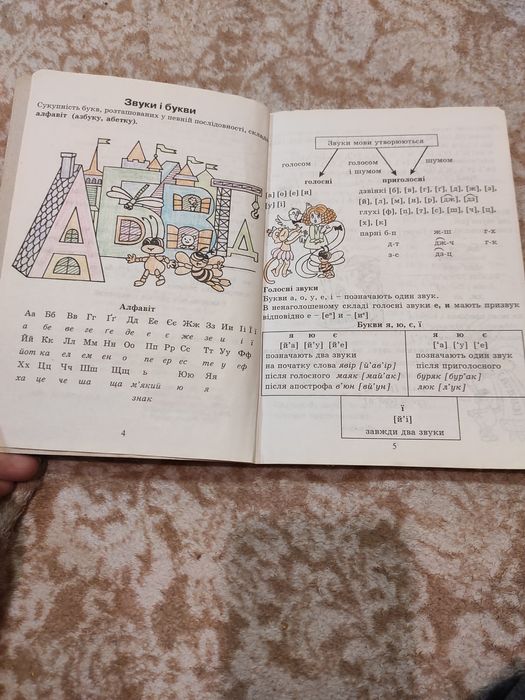 Звуки і букви
Сукупність букв, розташованих у певній послідовності, склада
алфавіт (азбуку, абетку).
Алфавіт
Аа Бб Вв Гг Ґґ Дд Ее Єє Жж Зз Ии Іі Її
а бе ве ге ґе де е є же зе и і ї
Йй Кк Лл Мм Нн Оо Пп Рр Сс Тт Уу Фф
йот ка ел ем ен о пе ер ес те у еф
Хх Цц Чч Шш Щщ ь Юю Яя
ха це че ша ща м'який ю я
знак
4
Звуки мови утворюються
голосом голосом шумом
і шумом
голосні приголосні
[а] [о] [е] [и] дзвінкі [б], [в], [г], [ґ], [д], [ж], [з],
[у] [і] [й], [л], [м], [н], [р], [дж], [дз]
глухі [ф], [п], [т], [с], [ш], [ч], [ц],
[х], [к]
парні б-п ж-ш г-х
д-т дж-ч ґ-к
з-с дз-ц
Голосні звуки
Букви а, о, у, е, і – позначають один звук.
В ненаголошеному складі голосні звуки е, и мають призвук
відповідно е – [еи] и – [ие]
Букви я, ю, є, ї
я ю є я ю є
[й'а] [й'у] [й'е] ['а] ['у] ['е]
позначають два звуки позначають один звук
на початку слова явір [й'ав'ір] після приголосного
після голосного маяк [май'ак] буряк [бур'ак]
після апострофа в'юн [вй'ун] люк [л'ук]
ї
[й'і]
завжди два звуки
5